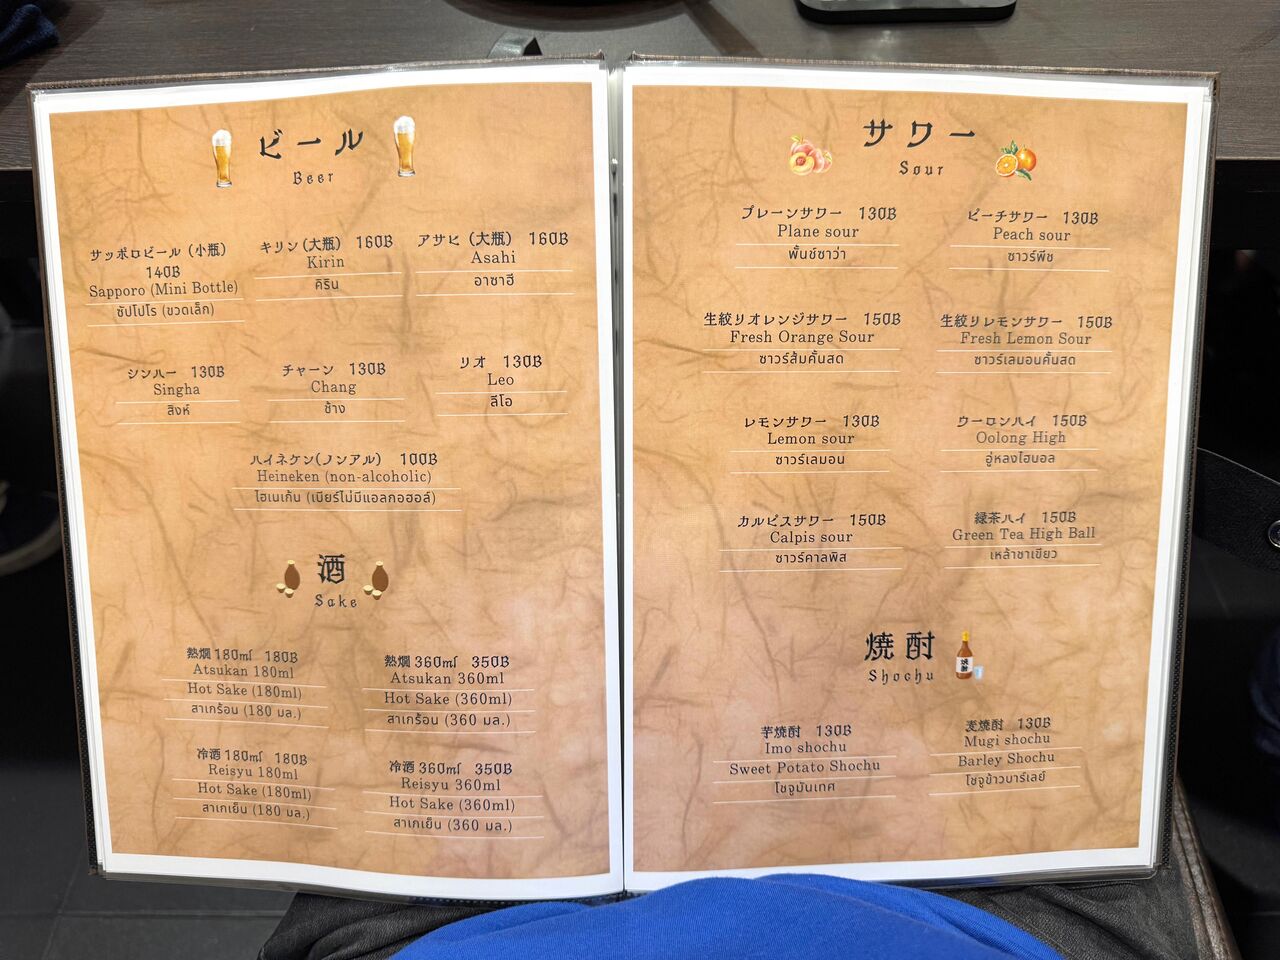 ビール
Beer
サッポロビール（小瓶）
140B
Sapporo (Mini Bottle)
ซัปโปโร (ขวดเล็ก)
キリン（大瓶） 160B
Kirin
คิริน
アサヒ（大瓶） 160B
Asahi
อาซาฮี
シンハー 130B
Singha
สิงห์
チャーン 130B
Chang
ช้าง
リオ 130B
Leo
ลีโอ
ハイネケン（ノンアル） 100B
Heineken (non-alcoholic)
ไฮเนเก้น (เบียร์ไม่มีแอลกอฮอล์)
酒
Sake
熱燗 180ml 180B
Atsukan 180ml
Hot Sake (180ml)
สาเกร้อน (180 มล.)
熱燗 360ml 350B
Atsukan 360ml
Hot Sake (360ml)
สาเกร้อน (360 มล.)
冷酒 180ml 180B
Reisyu 180ml
Hot Sake (180ml)
สาเกเย็น (180 มล.)
冷酒 360ml 350B
Reisyu 360ml
Hot Sake (360ml)
สาเกเย็น (360 มล.)
サワー
Sour
プレーンサワー 130B
Plane sour
พั้นช์ซาว่า
ピーチサワー 130B
Peach sour
ซาวร์พีช
生絞りオレンジサワー 150B
Fresh Orange Sour
ซาวร์ส้มคั้นสด
生絞りレモンサワー 150B
Fresh Lemon Sour
ซาวร์เลมอนคั้นสด
レモンサワー 130B
Lemon sour
ซาวร์เลมอน
ウーロンハイ 150B
Oolong High
อู่หลงไฮบอล
カルピスサワー 150B
Calpis sour
ซาวร์คาลพิส
緑茶ハイ 150B
Green Tea High Ball
เหล้าชาเขียว
焼酎
Shochu
焼酎
芋焼酎 130B
Imo shochu
Sweet Potato Shochu
โชจูมันเทศ
麦焼酎 130B
Mugi shochu
Barley Shochu
โชจูข้าวบาร์เลย์